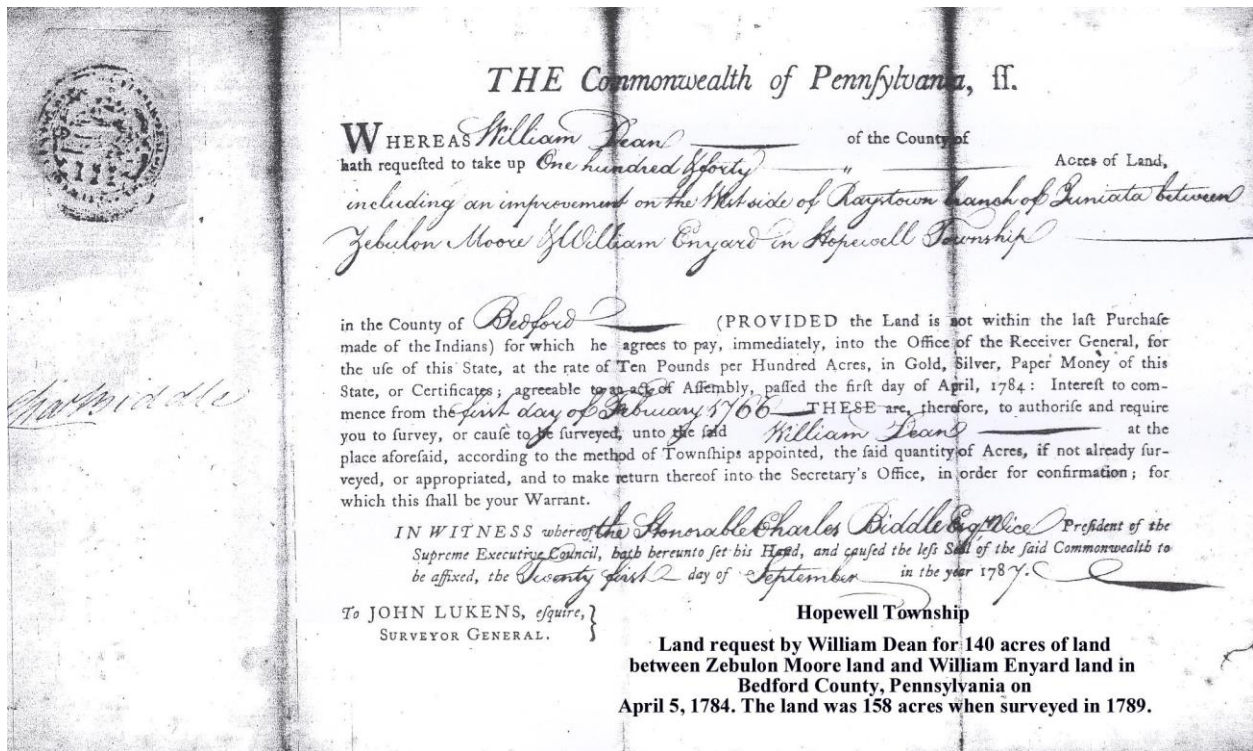 THE Commonwealth of Pennſylvania, ſſ.
WHEREAS William Dean of the County of
hath requeſted to take up One hundred & forty " Acres of Land,
including an improvement on the West side of Raystown branch of Juniata between
Zebulon Moore & William Enyard in Hopewell Township
in the County of Bedford (PROVIDED the Land is not within the laſt Purchaſe
made of the Indians) for which he agrees to pay, immediately, into the Office of the Receiver General, for
the uſe of this State, at the rate of Ten Pounds per Hundred Acres, in Gold, Silver, Paper Money of this
State, or Certificates; agreeable to an act of Aſſembly, paſſed the firſt day of April, 1784: Intereſt to com-
mence from the first day of February 1766 THESE are, therefore, to authoriſe and require
you to ſurvey, or cauſe to be ſurveyed, unto the ſaid William Dean at the
place aforeſaid, according to the method of Townſhips appointed, the ſaid quantity of Acres, if not already ſur-
veyed, or appropriated, and to make return thereof into the Secretary's Office, in order for confirmation; for
which this ſhall be your Warrant.
Chas Biddle
IN WITNESS whereof the Honorable Charles Biddle Esqr. Vice Preſident of the
Supreme Executive Council, hath hereunto ſet his Hand, and cauſed the leſs Seal of the ſaid Commonwealth to
be affixed, the Twenty first day of September in the year 1787.
To JOHN LUKENS, eſquire,
SURVEYOR GENERAL.
Hopewell Township
Land request by William Dean for 140 acres of land
between Zebulon Moore land and William Enyard land in
Bedford County, Pennsylvania on
April 5, 1784. The land was 158 acres when surveyed in 1789.